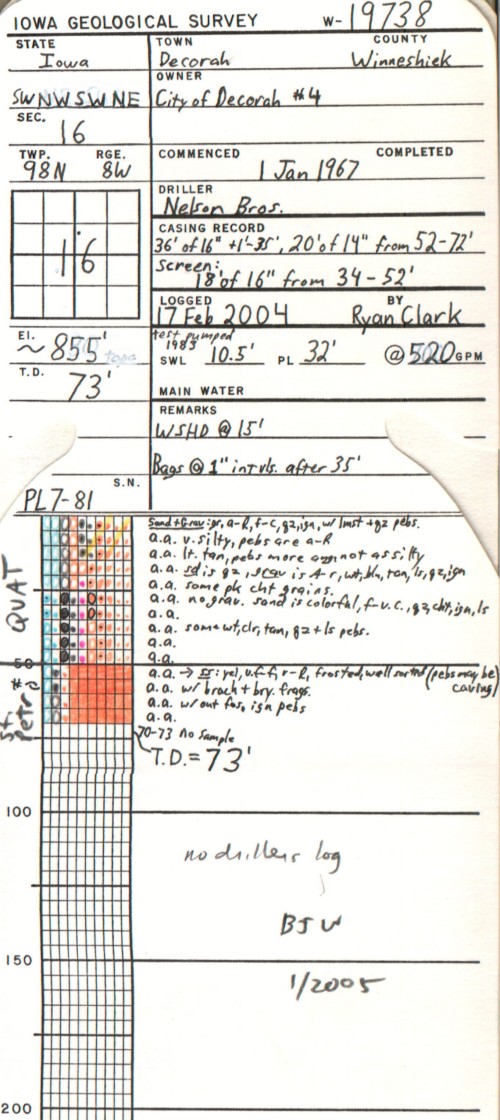 IOWA GEOLOGICAL SURVEY W-19738
STATE TOWN COUNTY
Iowa Decorah Winneshiek
OWNER
SWNWSWNE City of Decorah #4
SEC.
16
TWP. RGE. COMMENCED COMPLETED
98N 8W 1 Jan 1967
DRILLER
Nelson Bros.
CASING RECORD
36' of 16" +1'-35', 20' of 14" from 52-72'
16
Screen:
18' of 16" from 34-52'
LOGGED BY
17 Feb 2004 Ryan Clark
El. test pumped
~855' topo 1983 SWL 10.5' PL 32' @ 520 GPM
T.D.
73'
MAIN WATER
REMARKS
WSHD @ 15'
Bags @ 1" intvls. after 35'
S.N.
PL 7-81
Sand + Grav: gr, a-R, f-c, qz, ign, w/ lmst + qz pebs.
a.a. v. silty, pebs are a-R
a.a. lt. tan, pebs more ang, not as silty
a.a. sd is qz, grav is A-r, wt, bln, tan, ls, qz, ign
a.a. some pk cht grains.
a.a. no grav. sand is colorful, f-v.c., qz, cht, ign, ls
a.a.
a.a. some wt, clr, tan, qz + ls pebs.
a.a.
a.a.
QUAT
50
a.a. → ss: yel, v.f-f, r-R, frosted, well sorted (pebs may be caving)
a.a. w/ brach + bry. frags.
a.a. w/out fos, ign pebs
a.a.
St. Petr
70-73 no sample
T.D. = 73'
100
no drillers log
BJW
150
1/2005
200